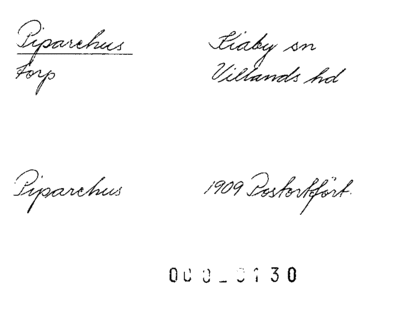 Piparehus Kiaby sn
torp Villands hd
Piparehus 1909 Postortfört.
000_0130